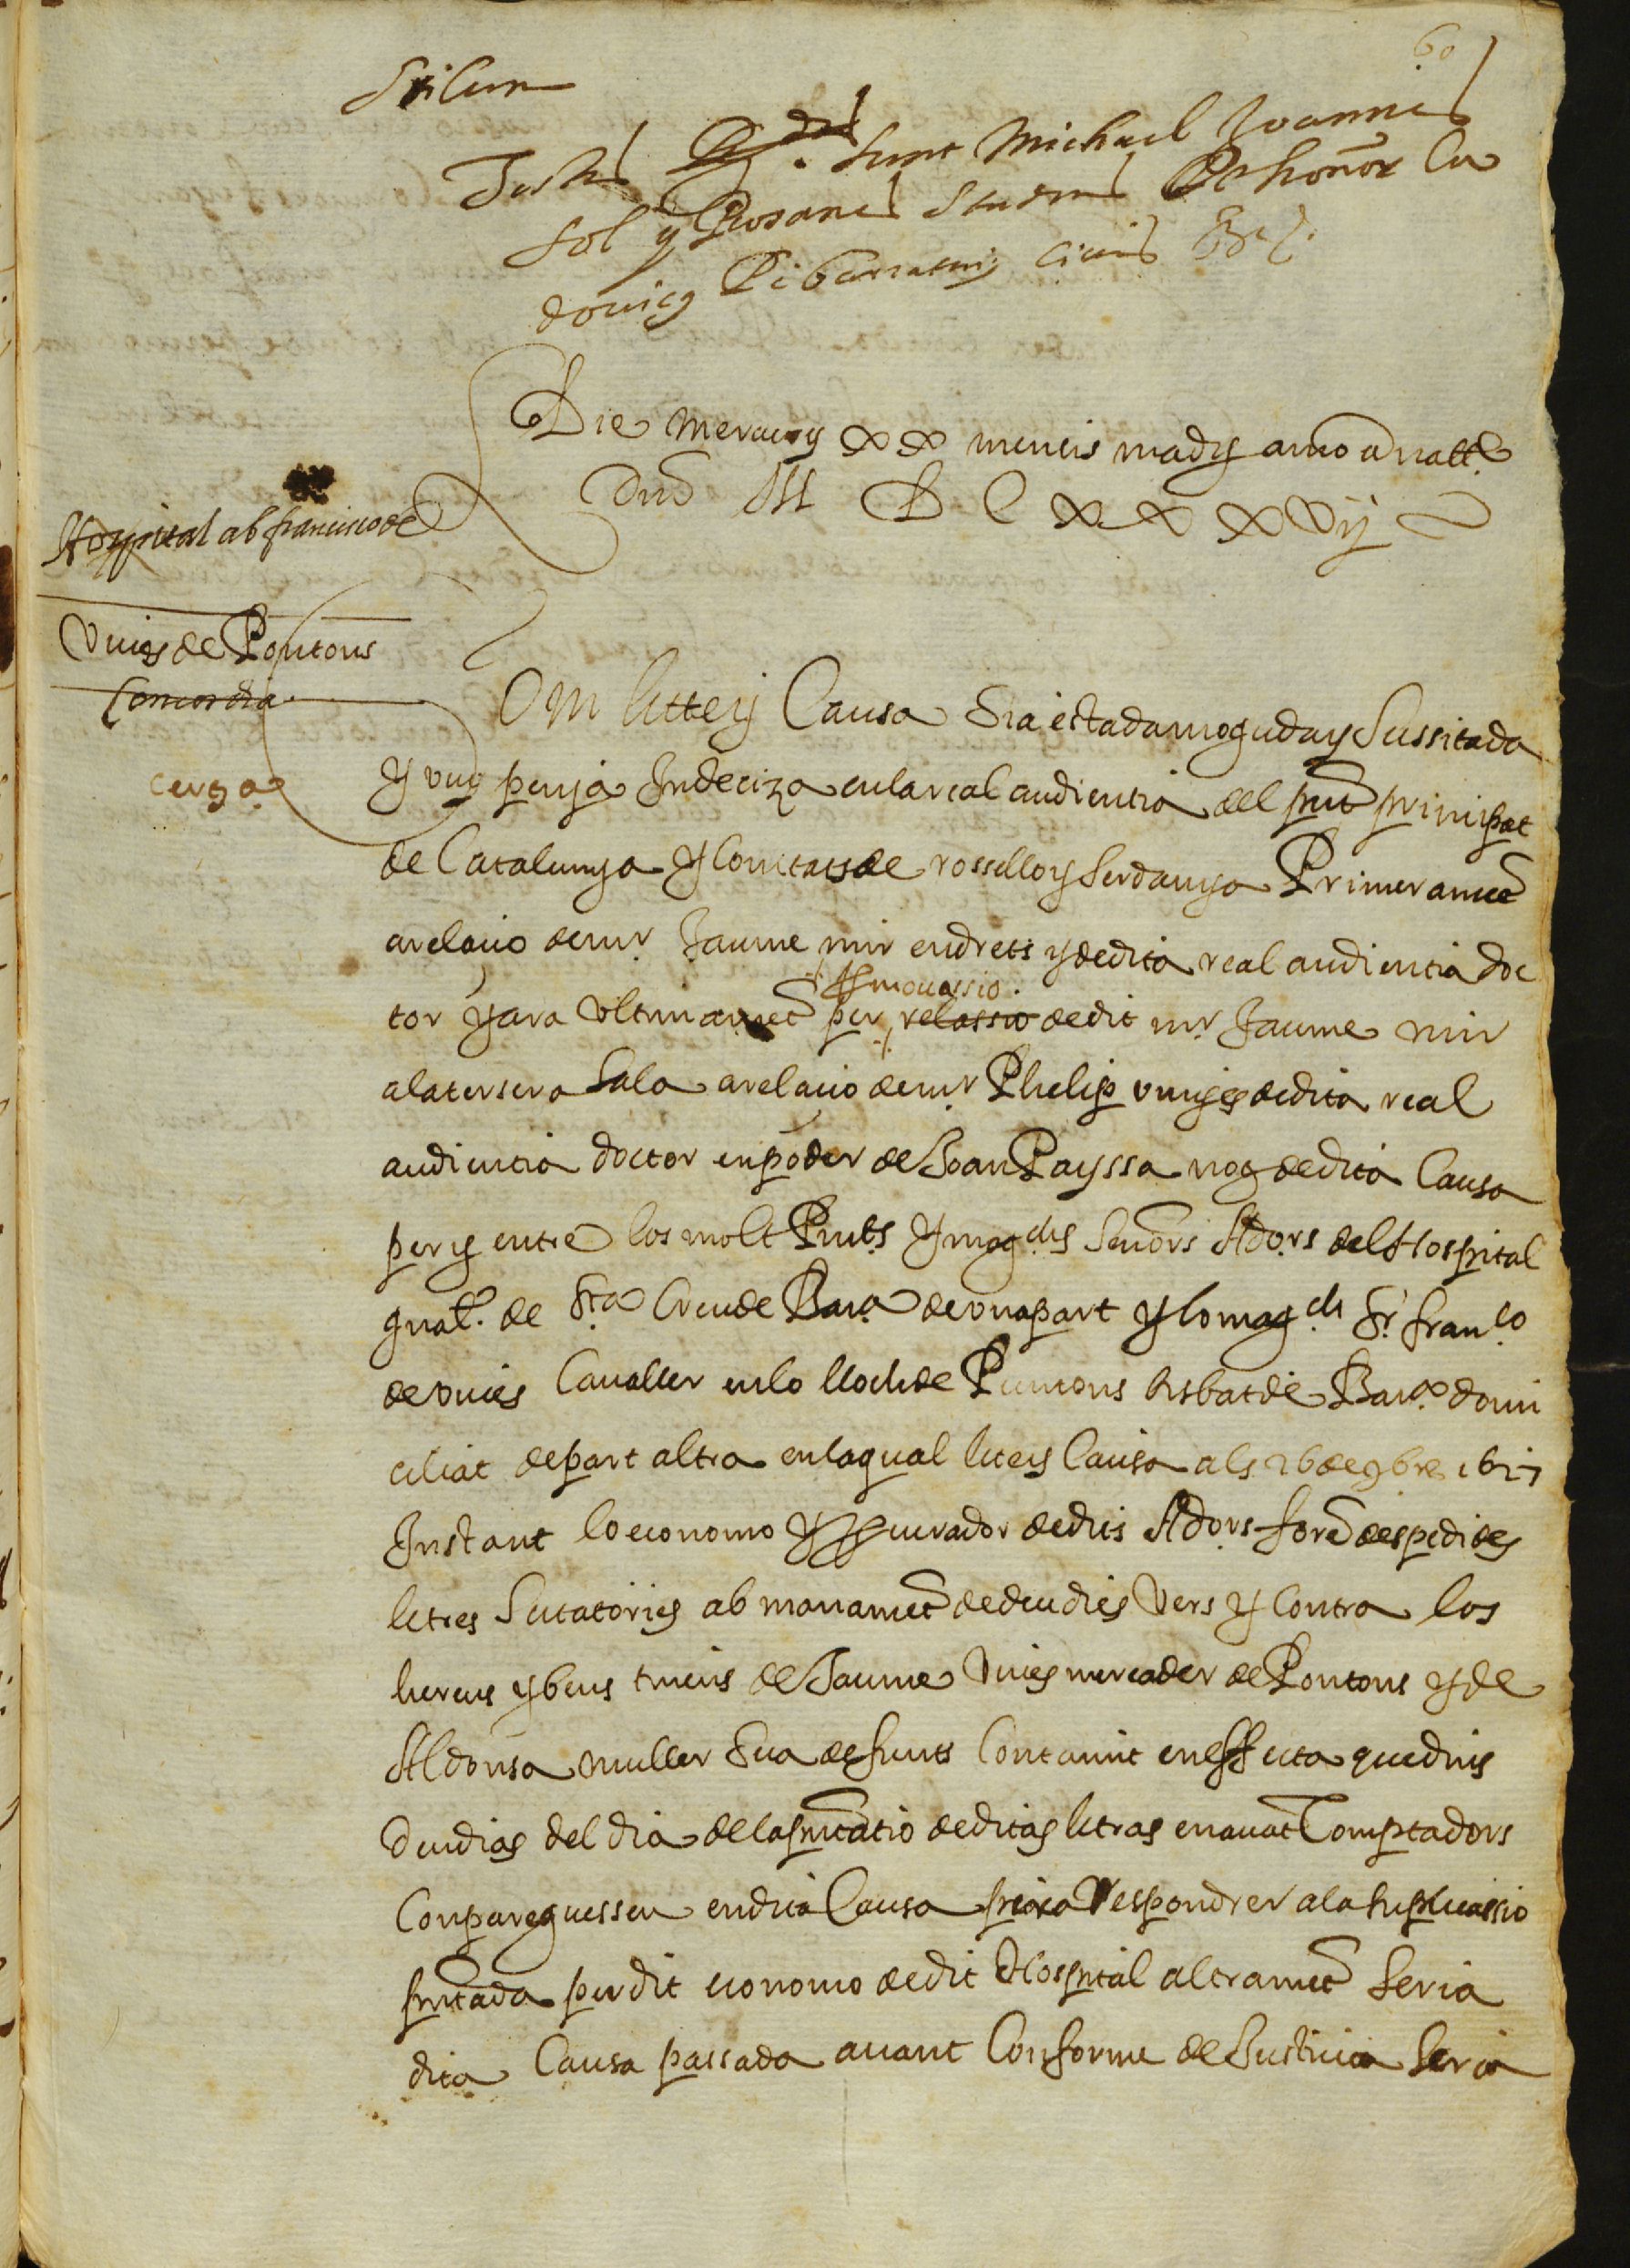 60
Stilum
Testes D. sunt Michael Joannes
Sol y Rosanes Studens Et honor. Lu
dovicus Ribarratuis civis Bar.
Die mercurij XX mensis madij anno a nattᵉ
Dnī M D C XX XVij
Hospital ab francisco de
Vives de Pontons
Concordia
cerga
Om littey Causa sia estada moguda y sussitada
y vuy penja Indeciza en la real audientia del pnt prinsipat
de Catalunya y Comtats de rossello y Serdanya Primeramēt
a relacio de mr. Jaume mir en drets y de dita real audientia doc
tor y ara ultimamēt per relassio de dit mr. Jaume mir
Esmouassio.
a la tersera Sala a relacio de mr. Phelip vinyes de dita real
audientia doctor en poder de Joan Payssa noy de dita Causa
per y entre los molt Rnts y magchs Señors Adors del Hospital
gnal. de Sta Creu de Bara de una part y lo magch Sr. franco
de vives Cavaller en lo lloch de Puntons bisbat de Bara domi
ciliat de part altra en la qual liteis Causa als 26 de 9bre 1627
Instant lo economo y Procurador de dits Adors forē despedides
letres Sitatories ab manamēt de deu dies vers y Contra los
hereus y bens tinens de Jaume Vives mercader de Pontons y de
Aldonsa muller sua defunts Contenint en effecta que dins
deu dias del dia de la pntatio de ditas letras en avāt Comptadors
Conpareguessen en dita Causa per a Respondrer a la suplicassio
pntada per dit economo de dit Hospital altramēt seria
dita Causa passada avant Conforme de Justicia seria